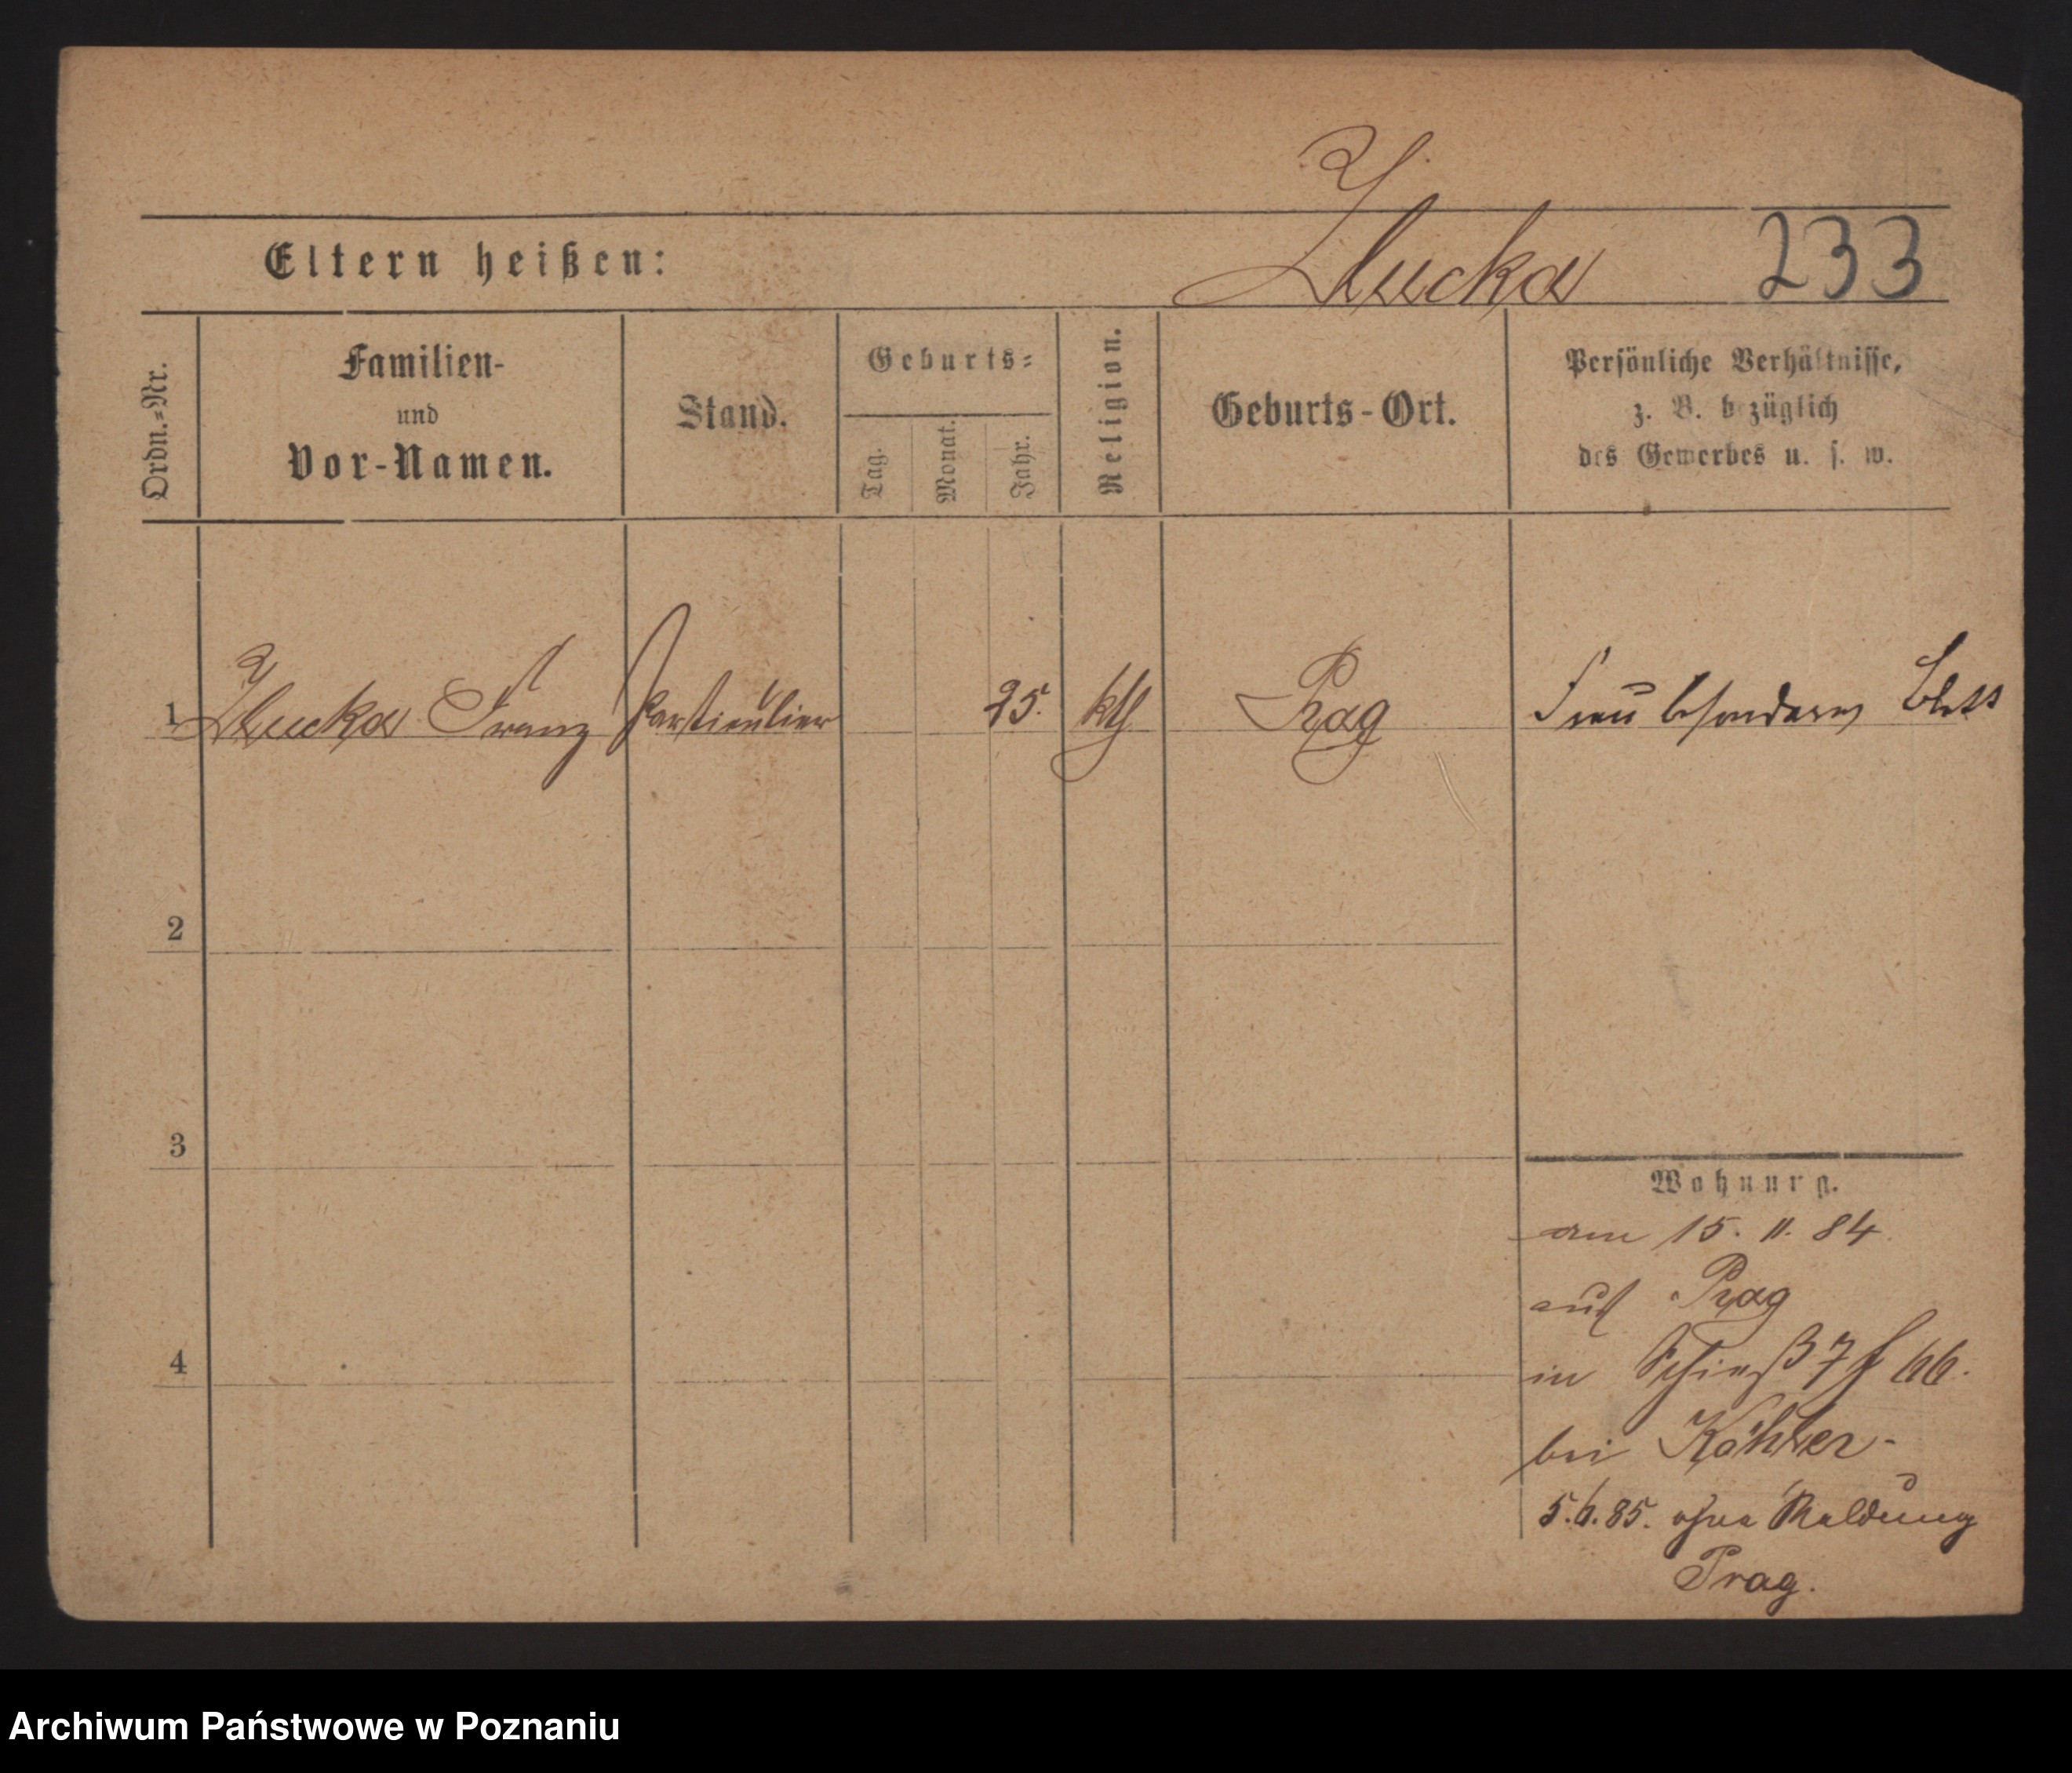 Eltern heißen:
Zlucka 233
Ordn.=Nr.
Familien-
und
Vor-Namen.
Stand.
Geburts=
Tag.
Monat.
Jahr.
Religion.
Geburts-Ort.
Persönliche Verhältnisse,
z. B. bezüglich
des Gewerbes u. s. w.
1 Zlucka Franz Particulier 25. kth Prag Frau besonderes Blatt
2
3
4
Wohnung.
am 15. 11. 84.
aus Prag
in Schieß 7 f 66.
bei Köhler-
5.6.85. ohne Meldung
Prag.
Archiwum Państwowe w Poznaniu